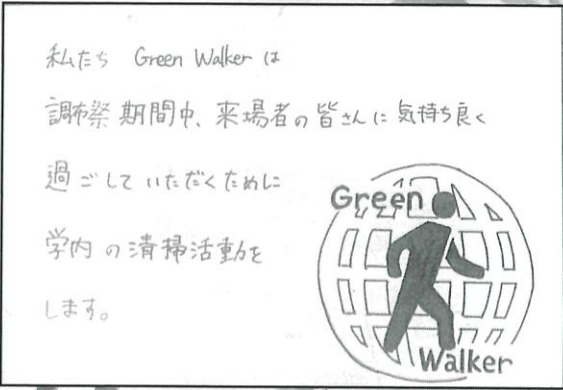 私たち Green Walker は
調布祭 期間中、来場者の皆さんに気持ち良く
過ごしていただくために
学内の清掃活動を
します。
Green
Walker